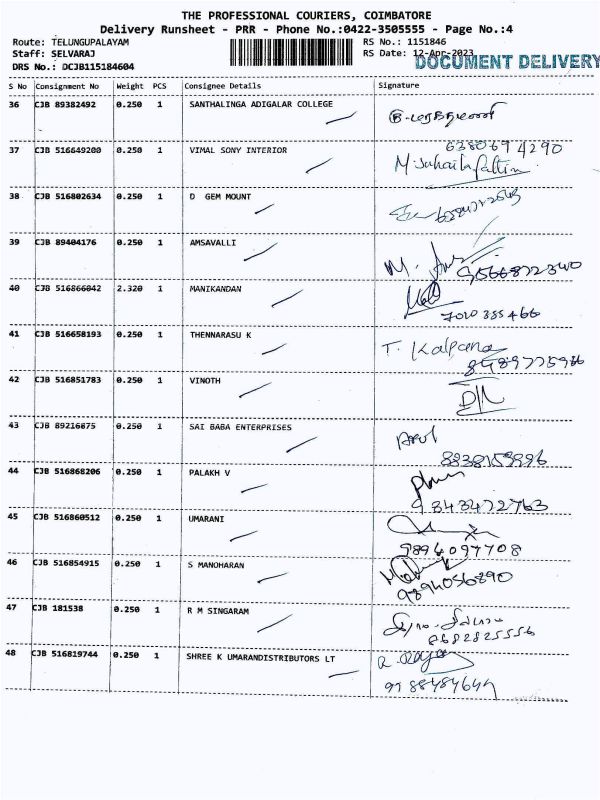 THE PROFESSIONAL COURIERS, COIMBATORE
Delivery Runsheet - PRR - Phone No.:0422-3505555 - Page No.:4
Route: TELUNGUPALAYAM RS No.: 1151846
Staff: SELVARAJ RS Date: 12-Apr-2023
DOCUMENT DELIVERY
DRS No.: DCJB115184604
S No Consignment No Weight PCS Consignee Details Signature
36 CJB 89382492 0.250 1 SANTHALINGA ADIGALAR COLLEGE
37 CJB 516649200 0.250 1 VIMAL SONY INTERIOR 6380694290
38 CJB 516802634 0.250 1 D GEM MOUNT
39 CJB 89404176 0.250 1 AMSAVALLI
40 CJB 516866042 2.320 1 MANIKANDAN
7010385466
41 CJB 516658193 0.250 1 THENNARASU K T. Kalpana
42 CJB 516851783 0.250 1 VINOTH
43 CJB 89216875 0.250 1 SAI BABA ENTERPRISES Arul
44 CJB 516868206 0.250 1 PALAKH V
9343472763
45 CJB 516860512 0.250 1 UMARANI
9894097708
46 CJB 516854915 0.250 1 S MANOHARAN
9894056890
47 CJB 181538 0.250 1 R M SINGARAM
48 CJB 516819744 0.250 1 SHREE K UMARANDISTRIBUTORS LT